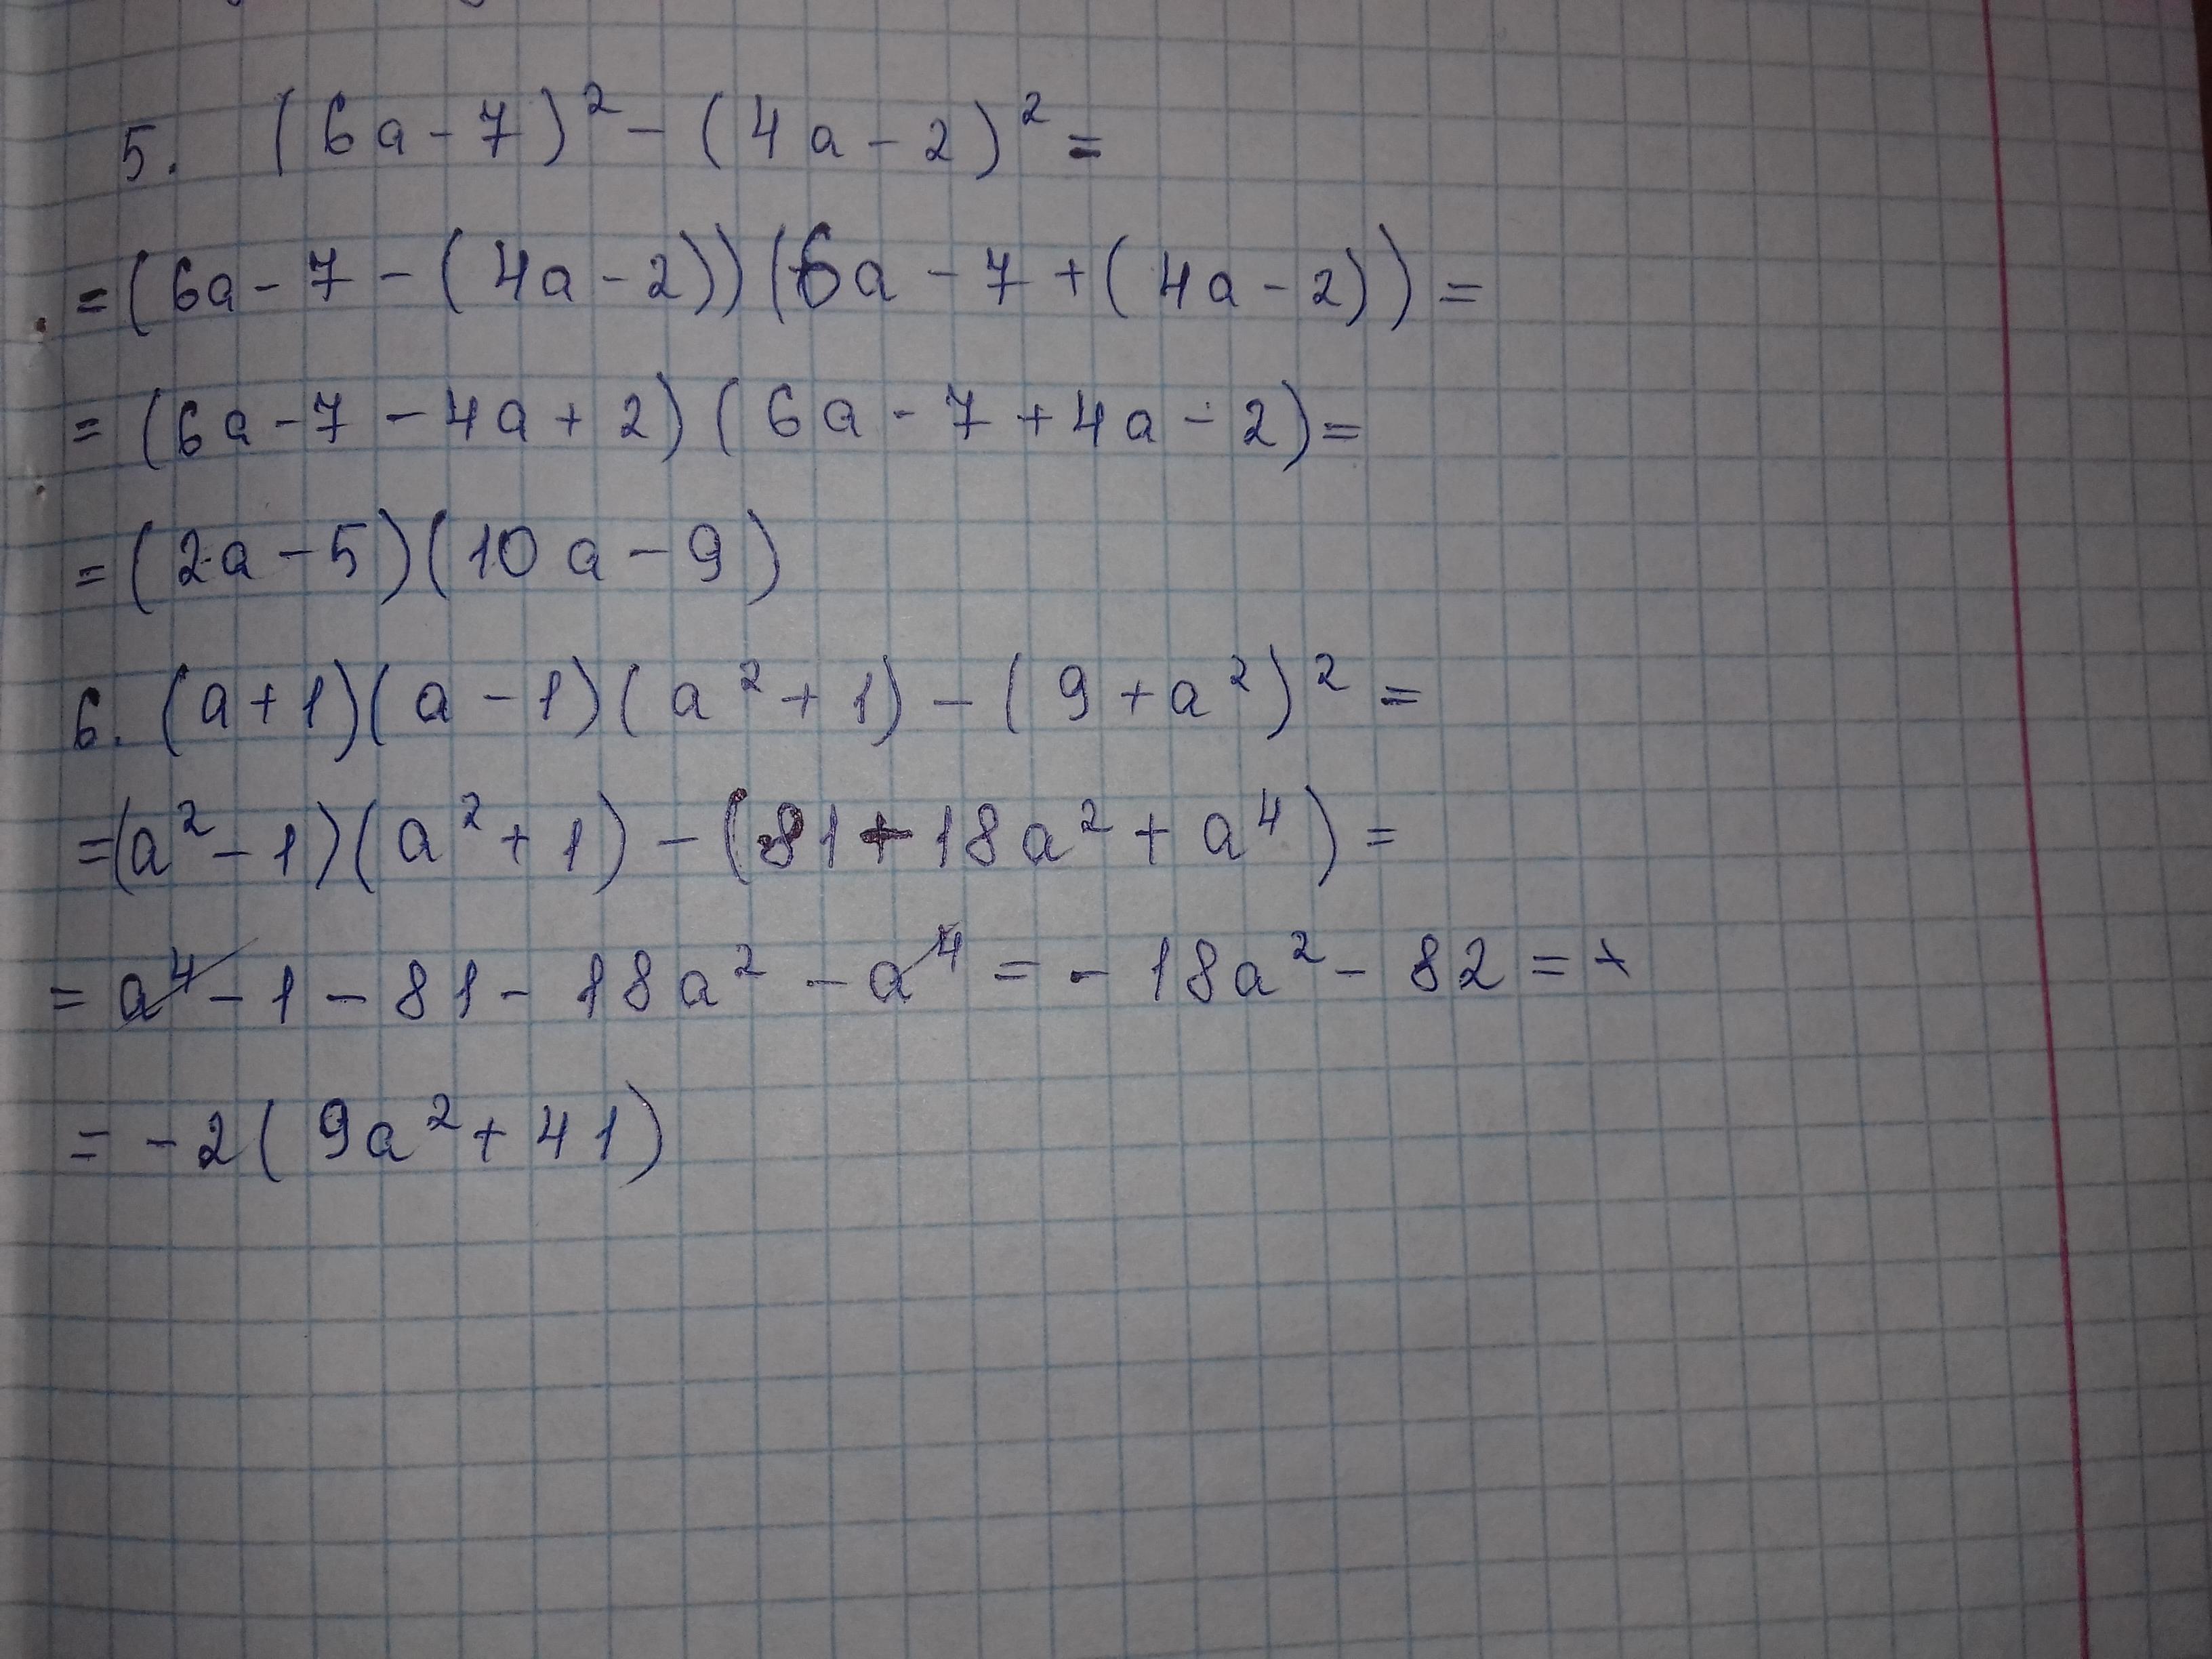 5. (6a-7)² - (4a-2)² =
= (6a-7-(4a-2))(6a-7+(4a-2)) =
= (6a-7-4a+2)(6a-7+4a-2) =
= (2a-5)(10a-9)
6. (a+1)(a-1)(a²+1) - (9+a²)² =
= (a²-1)(a²+1) - (81+18a²+a⁴) =
= a⁴-1-81-18a²-a⁴ = -18a²-82 =
= -2(9a²+41)